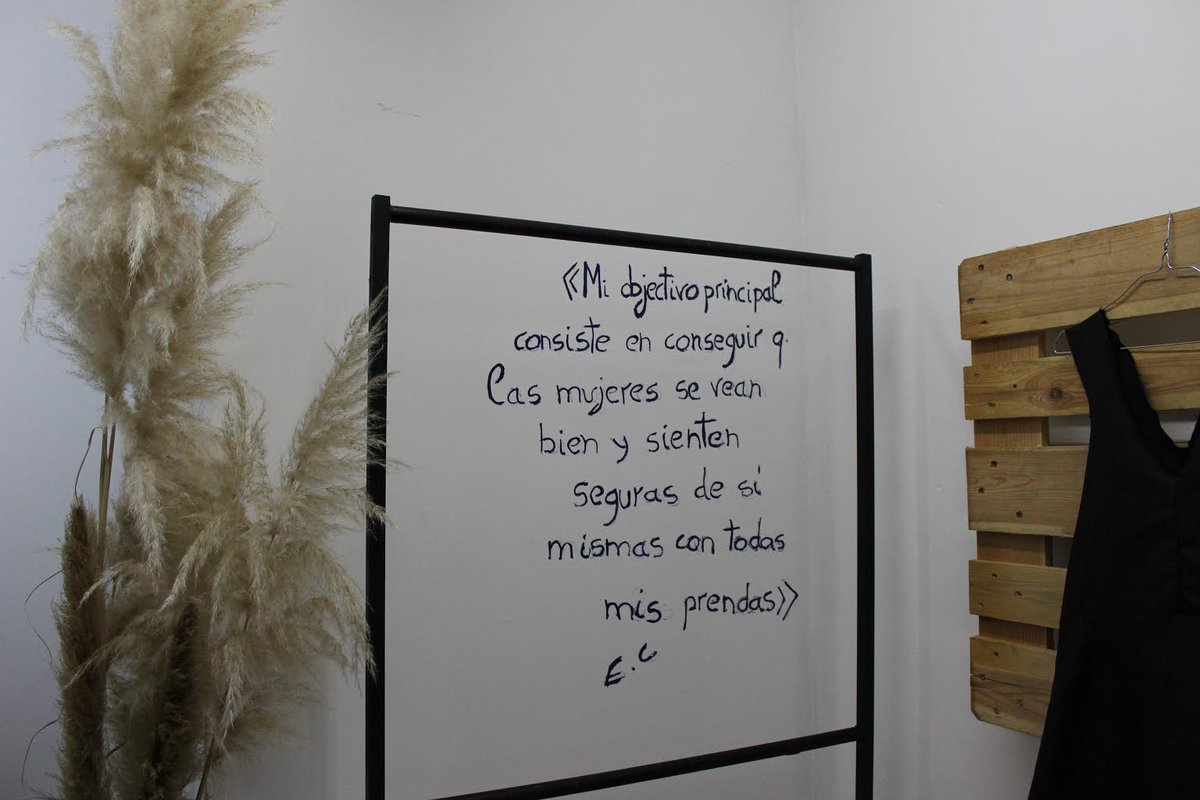 «Mi objectivo principal
consiste en conseguir q.
las mujeres se vean
bien y sienten
seguras de si
mismas con todas
mis prendas»
E.C